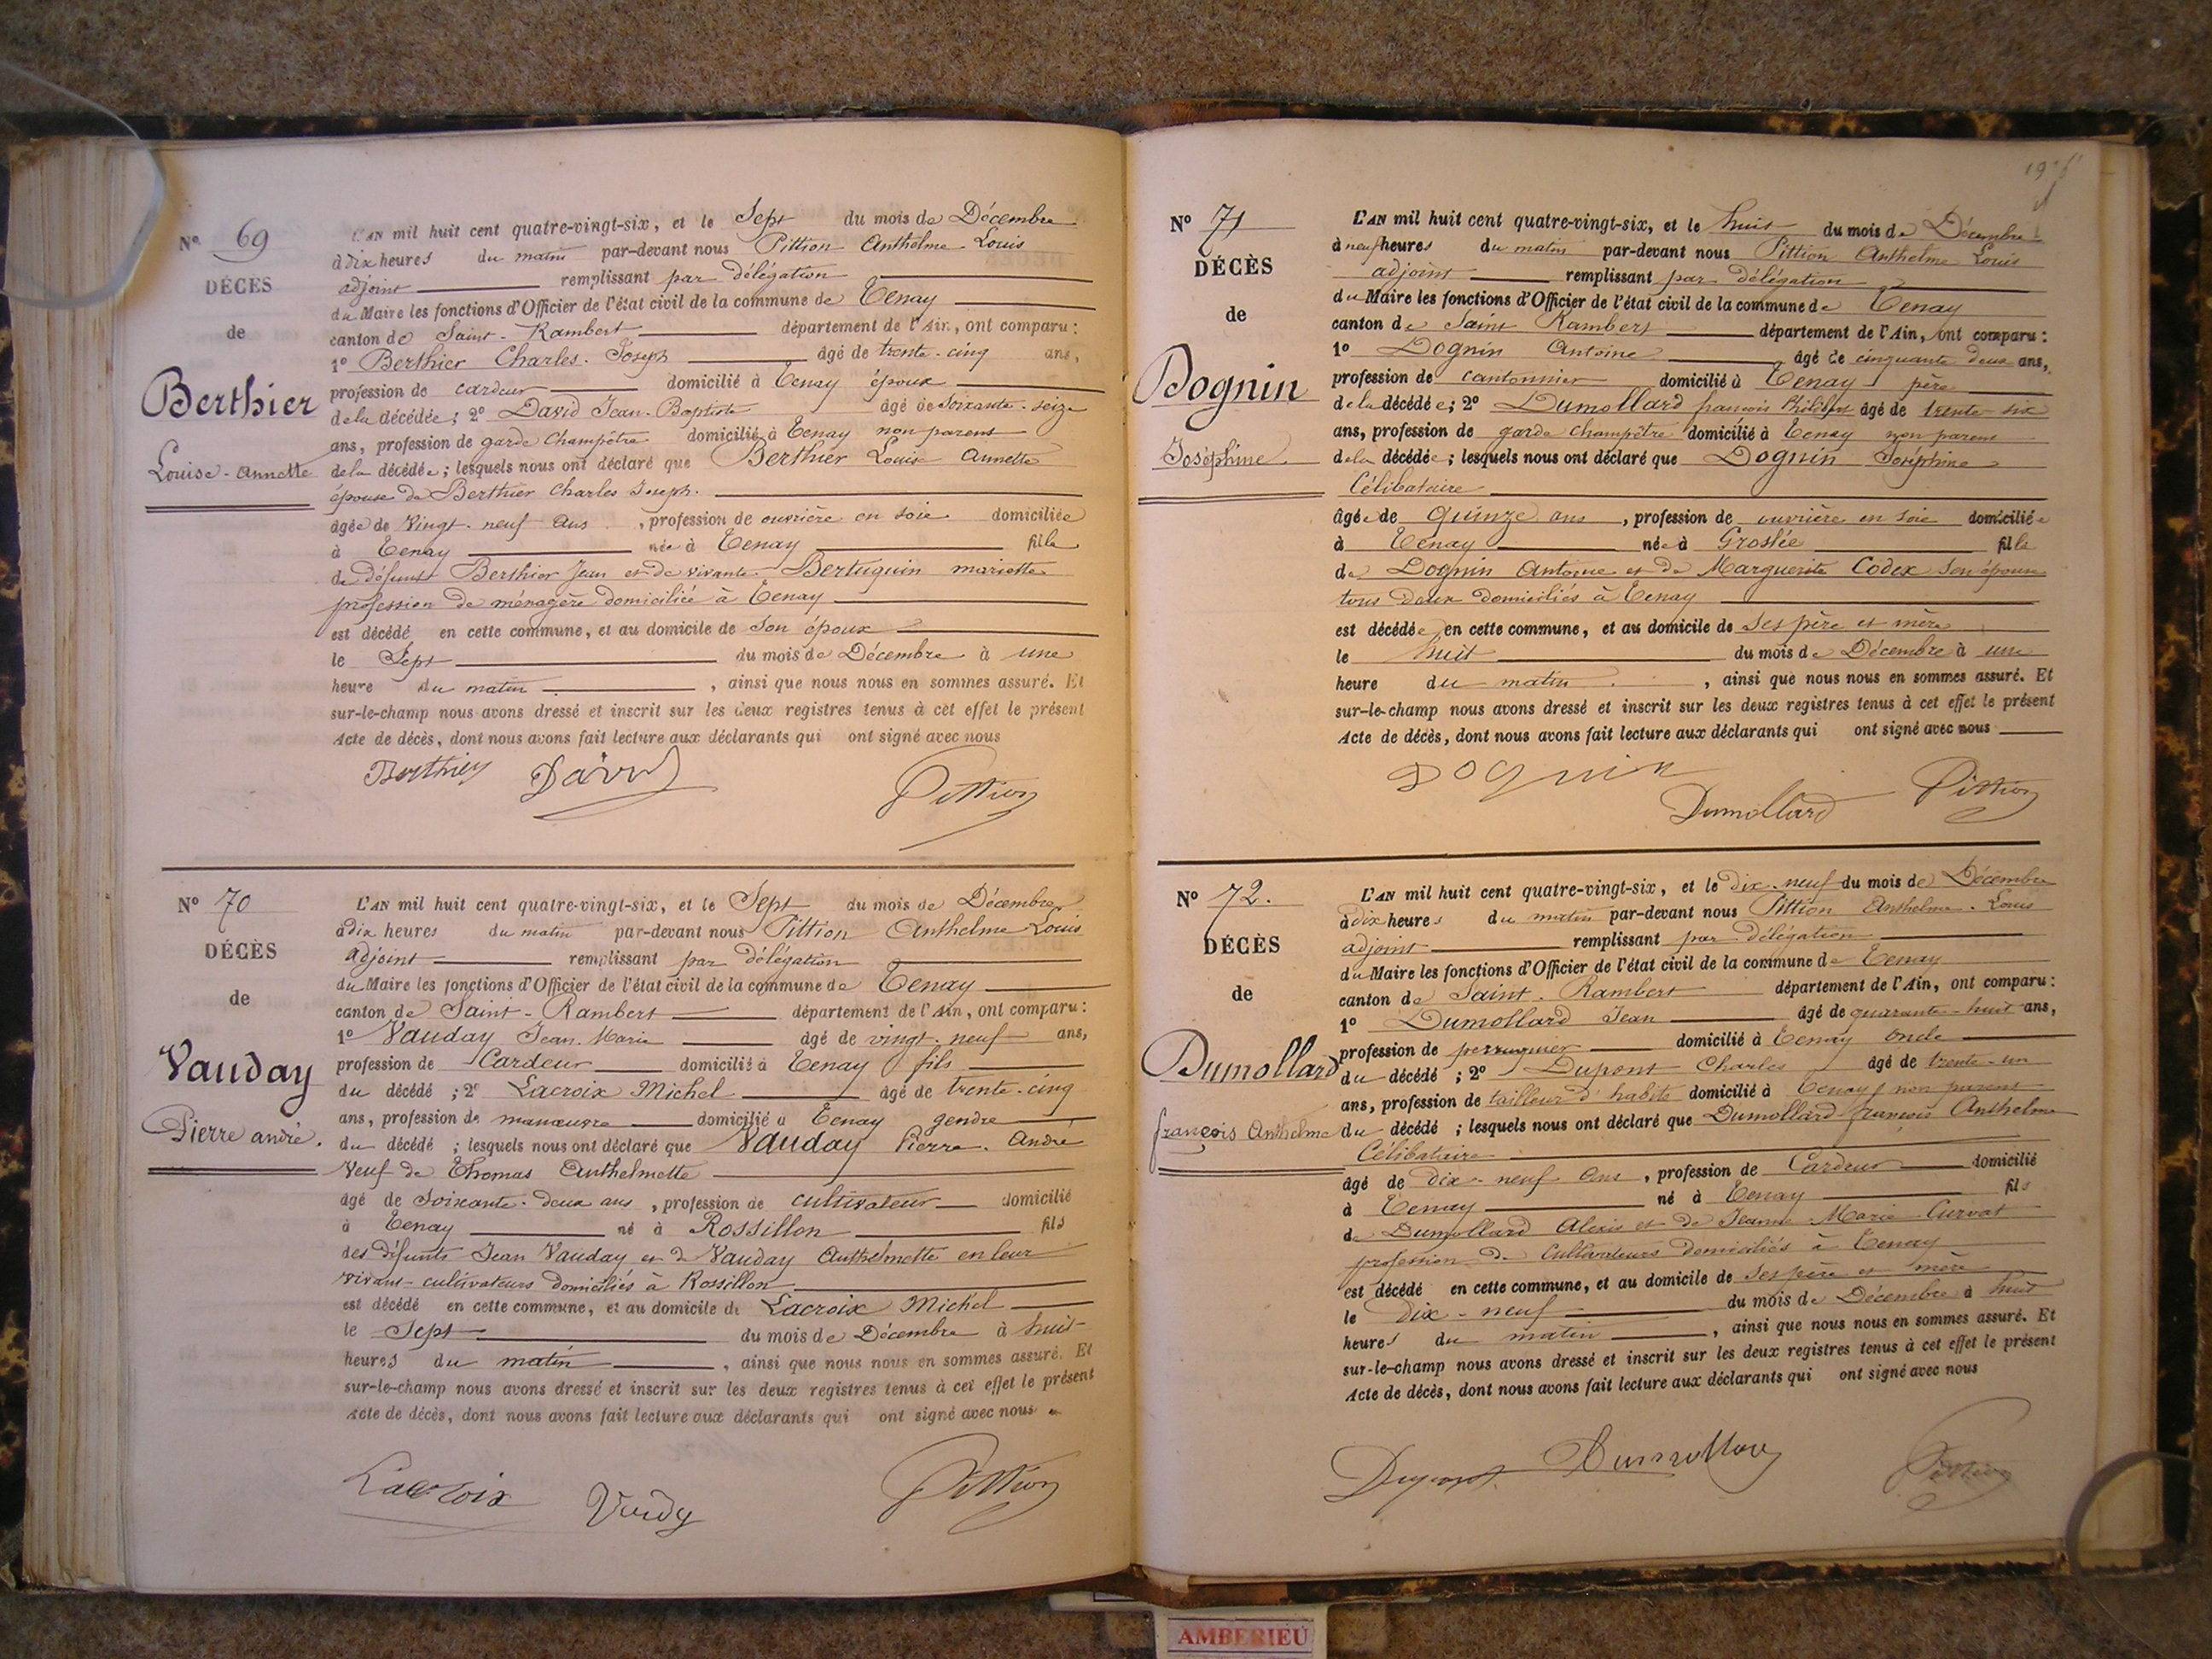 Nº 69
DÉCÈS
de
Berthier
Louise-Annette
L'AN mil huit cent quatre-vingt-six, et le Sept du mois de Décembre
à dix heures du matin par-devant nous Pittion Anthelme Louis
adjoint remplissant par délégation
du Maire les fonctions d'Officier de l'état civil de la commune de Tenay
canton de Saint-Rambert département de l'Ain, ont comparu :
1º Berthier Charles-Joseph âgé de trente-cinq ans,
profession de cardeur domicilié à Tenay époux
de la décédée ; 2º David Jean-Baptiste âgé de soixante-seize
ans, profession de garde champêtre domicilié à Tenay non parent
de la décédée ; lesquels nous ont déclaré que Berthier Louise Annette
épouse de Berthier Charles Joseph.
âgée de vingt-neuf ans, profession de ouvrière en soie domiciliée
à Tenay née à Tenay fille
de défunt Berthier Jean et de vivante Bertuquin mariette
profession de ménagère domiciliée à Tenay
est décédé en cette commune, et au domicile de son époux
le Sept du mois de Décembre à une
heure du matin, ainsi que nous nous en sommes assuré. Et
sur-le-champ nous avons dressé et inscrit sur les deux registres tenus à cet effet le présent
Acte de décès, dont nous avons fait lecture aux déclarants qui ont signé avec nous
Berthier David Pittion
Nº 70
DÉCÈS
de
Vauday
Pierre andré.
L'AN mil huit cent quatre-vingt-six, et le Sept du mois de Décembre
à dix heures du matin par-devant nous Pittion Anthelme Louis
adjoint remplissant par délégation
du Maire les fonctions d'Officier de l'état civil de la commune de Tenay
canton de Saint-Rambert département de l'Ain, ont comparu :
1º Vauday Jean-Marie âgé de vingt-neuf ans,
profession de Cardeur domicilié à Tenay fils
du décédé ; 2º Lacroix Michel âgé de trente-cinq
ans, profession de manœuvre domicilié à Tenay gendre
du décédé ; lesquels nous ont déclaré que Vauday Pierre-André
Veuf de Thomas Anthelmette
âgé de soixante-deux ans, profession de cultivateur domicilié
à Tenay né à Rossillon fils
des défunts Jean Vauday et de Vauday Anthelmette en leur
vivant cultivateurs domiciliés à Rossillon
est décédé en cette commune, et au domicile de Lacroix Michel
le Sept du mois de Décembre à huit
heures du matin, ainsi que nous nous en sommes assuré. Et
sur-le-champ nous avons dressé et inscrit sur les deux registres tenus à cet effet le présent
Acte de décès, dont nous avons fait lecture aux déclarants qui ont signé avec nous
Lacroix Pittion
Nº 71
DÉCÈS
de
Dognin
Joséphine.
L'AN mil huit cent quatre-vingt-six, et le huit du mois de Décembre
à neuf heures du matin par-devant nous Pittion Anthelme Louis
adjoint remplissant par délégation
du Maire les fonctions d'Officier de l'état civil de la commune de Tenay
canton de Saint Rambert département de l'Ain, ont comparu :
1º Dognin Antoine âgé de cinquante deux ans,
profession de cantonnier domicilié à Tenay père
de la décédée ; 2º Dumollard françois âgé de trente-six
ans, profession de garde champêtre domicilié à Tenay non parent
de la décédée ; lesquels nous ont déclaré que Dognin Joséphine
Célibataire
âgée de Quinze ans, profession de ouvrière en soie domiciliée
à Tenay née à Groslée fille
de Dognin Antoine et de Marguerite Codex son épouse
tous deux domiciliés à Tenay
est décédée en cette commune, et au domicile de ses père et mère
le huit du mois de Décembre à une
heure du matin, ainsi que nous nous en sommes assuré. Et
sur-le-champ nous avons dressé et inscrit sur les deux registres tenus à cet effet le présent
Acte de décès, dont nous avons fait lecture aux déclarants qui ont signé avec nous
Dognin Dumollard Pittion
Nº 72.
DÉCÈS
de
Dumollard
françois Anthelme
L'AN mil huit cent quatre-vingt-six, et le dix-neuf du mois de Décembre
à dix heures du matin par-devant nous Pittion Anthelme-Louis
adjoint remplissant par délégation
du Maire les fonctions d'Officier de l'état civil de la commune de Tenay
canton de Saint-Rambert département de l'Ain, ont comparu :
1º Dumollard Jean âgé de quarante-huit ans,
profession de perruquier domicilié à Tenay oncle
du décédé ; 2º Dupont Charles âgé de trente-un
ans, profession de tailleur d'habits domicilié à Tenay non parent
du décédé ; lesquels nous ont déclaré que Dumollard françois Anthelme
Célibataire
âgé de dix-neuf ans, profession de Cardeur domicilié
à Tenay né à Tenay fils
de Dumollard Alexis et de Jeanne-Marie Curvat
profession de Cultivateurs domiciliés à Tenay
est décédé en cette commune, et au domicile de ses père et mère
le dix-neuf du mois de Décembre à huit
heures du matin, ainsi que nous nous en sommes assuré. Et
sur-le-champ nous avons dressé et inscrit sur les deux registres tenus à cet effet le présent
Acte de décès, dont nous avons fait lecture aux déclarants qui ont signé avec nous
Dupont Dumollard Pittion
AMBERIEU